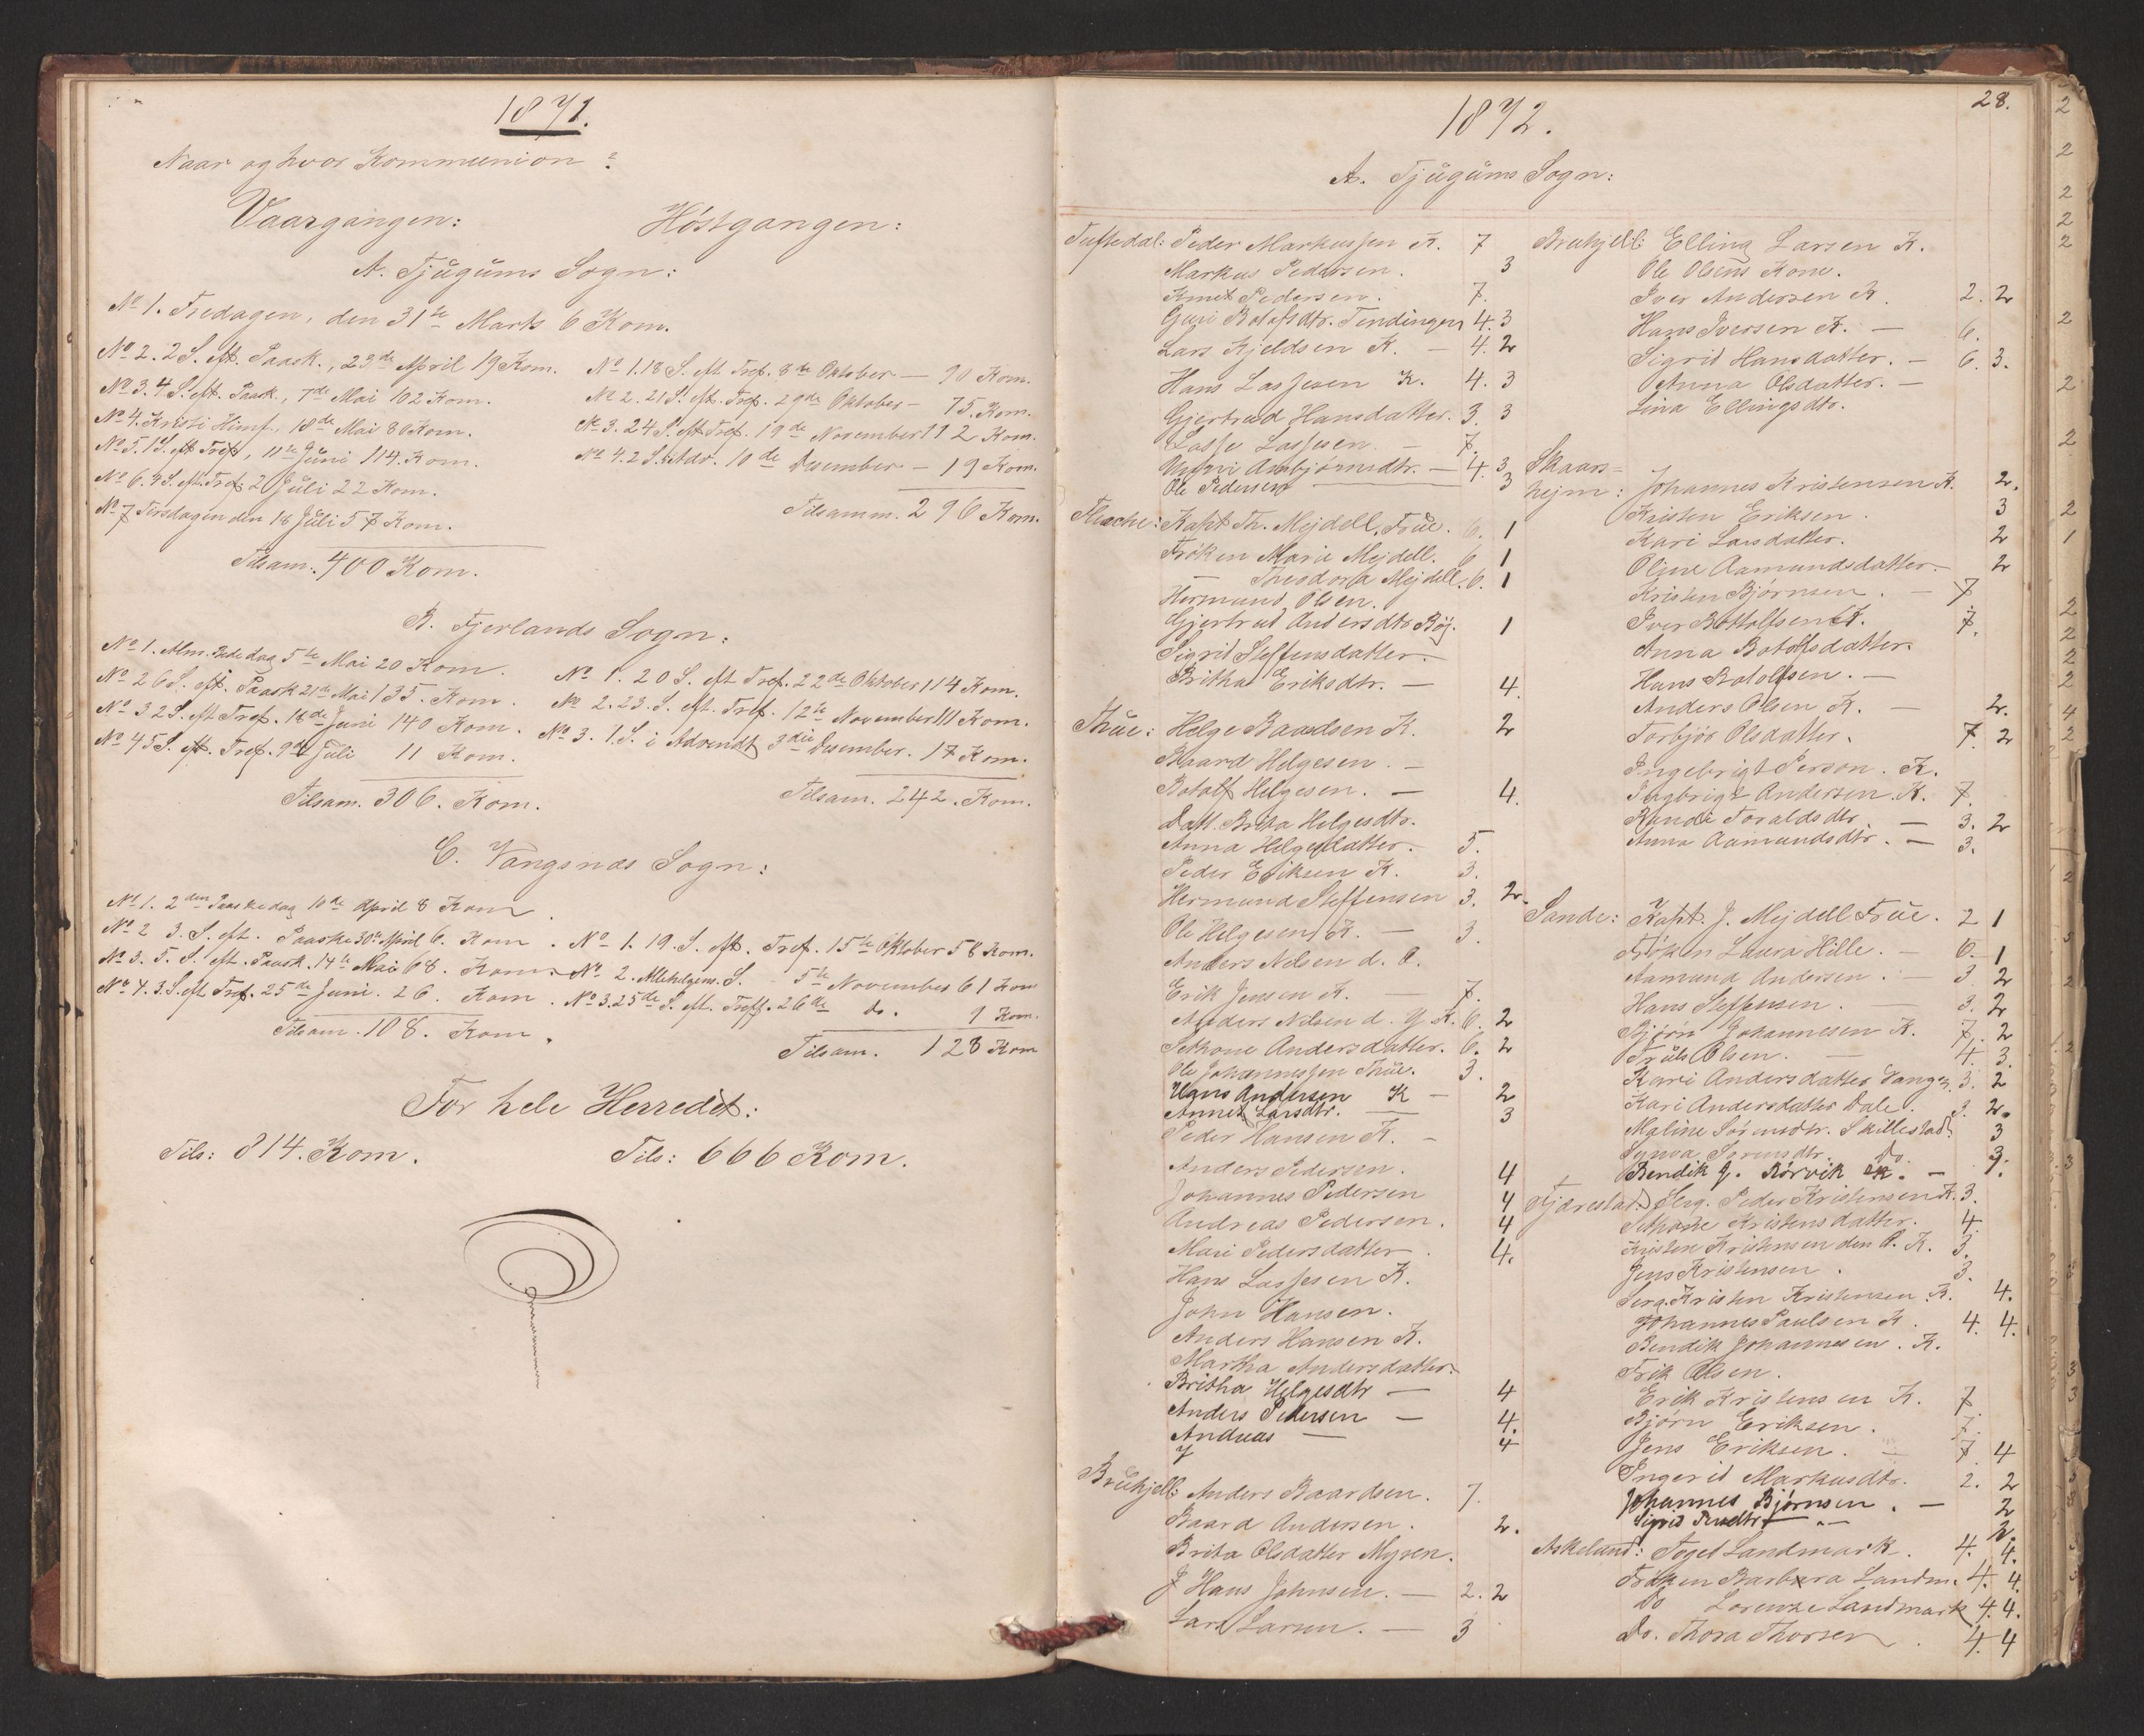 1871.
Naar og hvor Kommunion?
Vaargangen:
Höstgangen:
A. Tjugums Sogn:
No 1. Fredagen, den 31te Marts 6 Kom.
No 2. 2 S. eft. Paask., 23de April 19 Kom.
No 3. 4 S. eft. Paask, 7de Mai 102 Kom.
No 4. Kristi Himf., 18de Mai 80 Kom.
No 5. 1 S. eft Tref, 11te Juni 114. Kom.
No 6. 4 S. eft. Tref. 2 Juli 22 Kom.
No 7 Tirsdagen den 18 Juli 57 Kom.
Tilsam: 400 Kom.
No 1. 18 S. eft Tref. 8de Oktober — 90 Kom.
No 2. 21 S. eft. Tref. 29de Oktober — 75. Kom.
No 3. 24 S. eft Tref. 19de November 112 Kom.
No 4. 2 S. i Adv. 10de Desember — 19 Kom.
Tilsamm. 296 Kom.
B. Fjerlands Sogn:
No 1. Alm. Bededag 5te Mai 20 Kom.
No 2 6 S. eft. Paask 21de Mai 135. Kom.
No 3 2 S. eft Tref. 18de Juni 140 Kom.
No 4 5 S. eft. Tref. 9de Juli 11 Kom.
Tilsam. 306. Kom.
No 1. 20 S. eft Tref. 22de Oktober 114 Kom.
No 2. 23. S. eft. Tref. 12te November 111 Kom.
No 3. 1 S. i Advendt 3die Desember. 17 Kom.
Tilsam. 242. Kom.
C. Vangsnæs Sogn:
No 1. 2den Paaskedag 10de April 8 Kom.
No 2 3. S. eft. Paaske 30te April 6. Kom.
No 3. 5. S. eft. Paask. 14te Mai 68. Kom.
No 4. 3. S. eft Tref. 25de Juni. 26. Kom.
Tilsam. 108. Kom.
No 1. 19. S. eft. Tref. 15te Oktober 58 Kom.
No 2. Allehelgens. S. - 5te November 61 Kom
No 3. 25de S. eft. Treff. 26de do. 9 Kom.
Tilsam. 128 Kom
For hele Herredet:
Tils: 814. Kom.
Tils: 666 Kom.
28.
1872.
A. Tjugums Sogn:
Tuftedal: Peder Markussen K. 7
Markus Pedersen. 3
Knut Pedersen. 7.
Guri Botolfsdtr. Tendingen 4. 3
Lars Kjeldsen K. — 4. 2
Hans Lassesen K. 4. 3
Gjertrud Hansdatter. 3. 3
Lasse Lassesen. — 7.
Ambjörnsdtr. — 4. 3
Ole Pedersen 3
Flesche: Kapt Th. Mejdell, Frue. 6. 1
Fröken Marie Mejdell. 6 1
— Theodora Mejdell. 6. 1
Hermund Olsen.
Gjertrud Andersdtr Böj. 1
Sigrid Steffensdatter.
Britha Eriksdtr. — 4.
Thue: Helge Baardsen K. 2
Baard Helgesen. —
Botolf Helgesen. — 4.
Datt. Brita Helgesdtr.
Anna Helgesdatter. 5.
Peder Eriksen K. 3.
Hermund Steffensen 3. 2.
Ole Helgesen K. — 3.
Anders Nelsen d. Æ.
Erik Jensen K. — 7.
Anders Nelsen d. Y. K. 6. 2
Sethone Andersdatter. 6. 2
Ole Johannessen Thue. 3.
Hans Andersen K — 2
Anna Larsdtr. — 3
Peder Hansen K. -
Anders Pedersen. 4
Johannes Pedersen 4
Andreas Pedersen. 4
Mari Pedersdatter. 4.
Hans Lassesen K.
John Hansen.
Anders Hansen K.
Martha Andersdatter.
Britha Helgesdtr — 4
Anders Pedersen — 4.
Andreas — 4
Bruhjell: Anders Baardsen. 7.
Baard Andersen. 2.
Brita Olsdatter Myren.
Hans Johnsen. — 2. 2
Lars Larsen. — 3
Bruhjell: Elling Larsen K.
Ole Olsens Kone.
Iver Andersen K. 2. 2
Hans Iversen K. — 6.
Sigrid Hansdatter. — 6. 3.
Anna Olsdatter. —
Lina Ellingsdtr.
Skaars=
hejm: Johannes Kristensen K. 2.
Kristen Eriksen. 3
Kari Larsdatter. 2
Oline Aamundsdatter. 2
Kristen Björnsen. — 7
Iver Botolfsen K. 7.
Anna Botolfsdatter.
Hans Botolfsen. —
Anders Olsen K. — 2.
Torbjör Olsdatter. 7. 2
Ingebrigt Person. K.
Ingbrigt Andersen. K. 7.
Randi Toraldsdtr. — 3. 2
Anna Aamundsdtr. — 3.
Sande: Kapt. J. Mejdell Frue. 2 1
Fröken Laura Hille. — 6. 1
Aamund Andersen. — 3 2
Hans Steffensen. — 3. 2
Björn Johannesen K. 7. 2
Truls Olsen. — 4. 3.
Kari Andersdatter Vange. 3. 2
Kari Andersdatter Dale. 3. 2.
Maline Sörensdtr. Skillestad. 3
Synva Sorensdtr. Do. 3.
Bendik J. Rörvik K. — 1.
Fjærestad: Serg. Peder Kristensen K. 3.
Sethone Kristensdatter. 4.
Kristen Kristensen den Æ. K. 3.
Jens Kristensen. 3.
Serg. Kristen Kristensen. K. 4.
Johannes Paulsen K. 4. 4.
Bendik Johannesen. K.
Erik Olsen.
Erik Kristensen K. 7.
Björn Eriksen. 7.
Jens Eriksen. — 7. 4
Ingerid Markusdtr. 2. 2
Johannes Björnsen. — 2
Sigrid 2.
Askelund: Foged Landmark. 4. 4.
Fröken Barbara Landm. 4. 4.
Do Lorenze Landmark 4. 4.
Do. Thora Thorsen. 4. 4